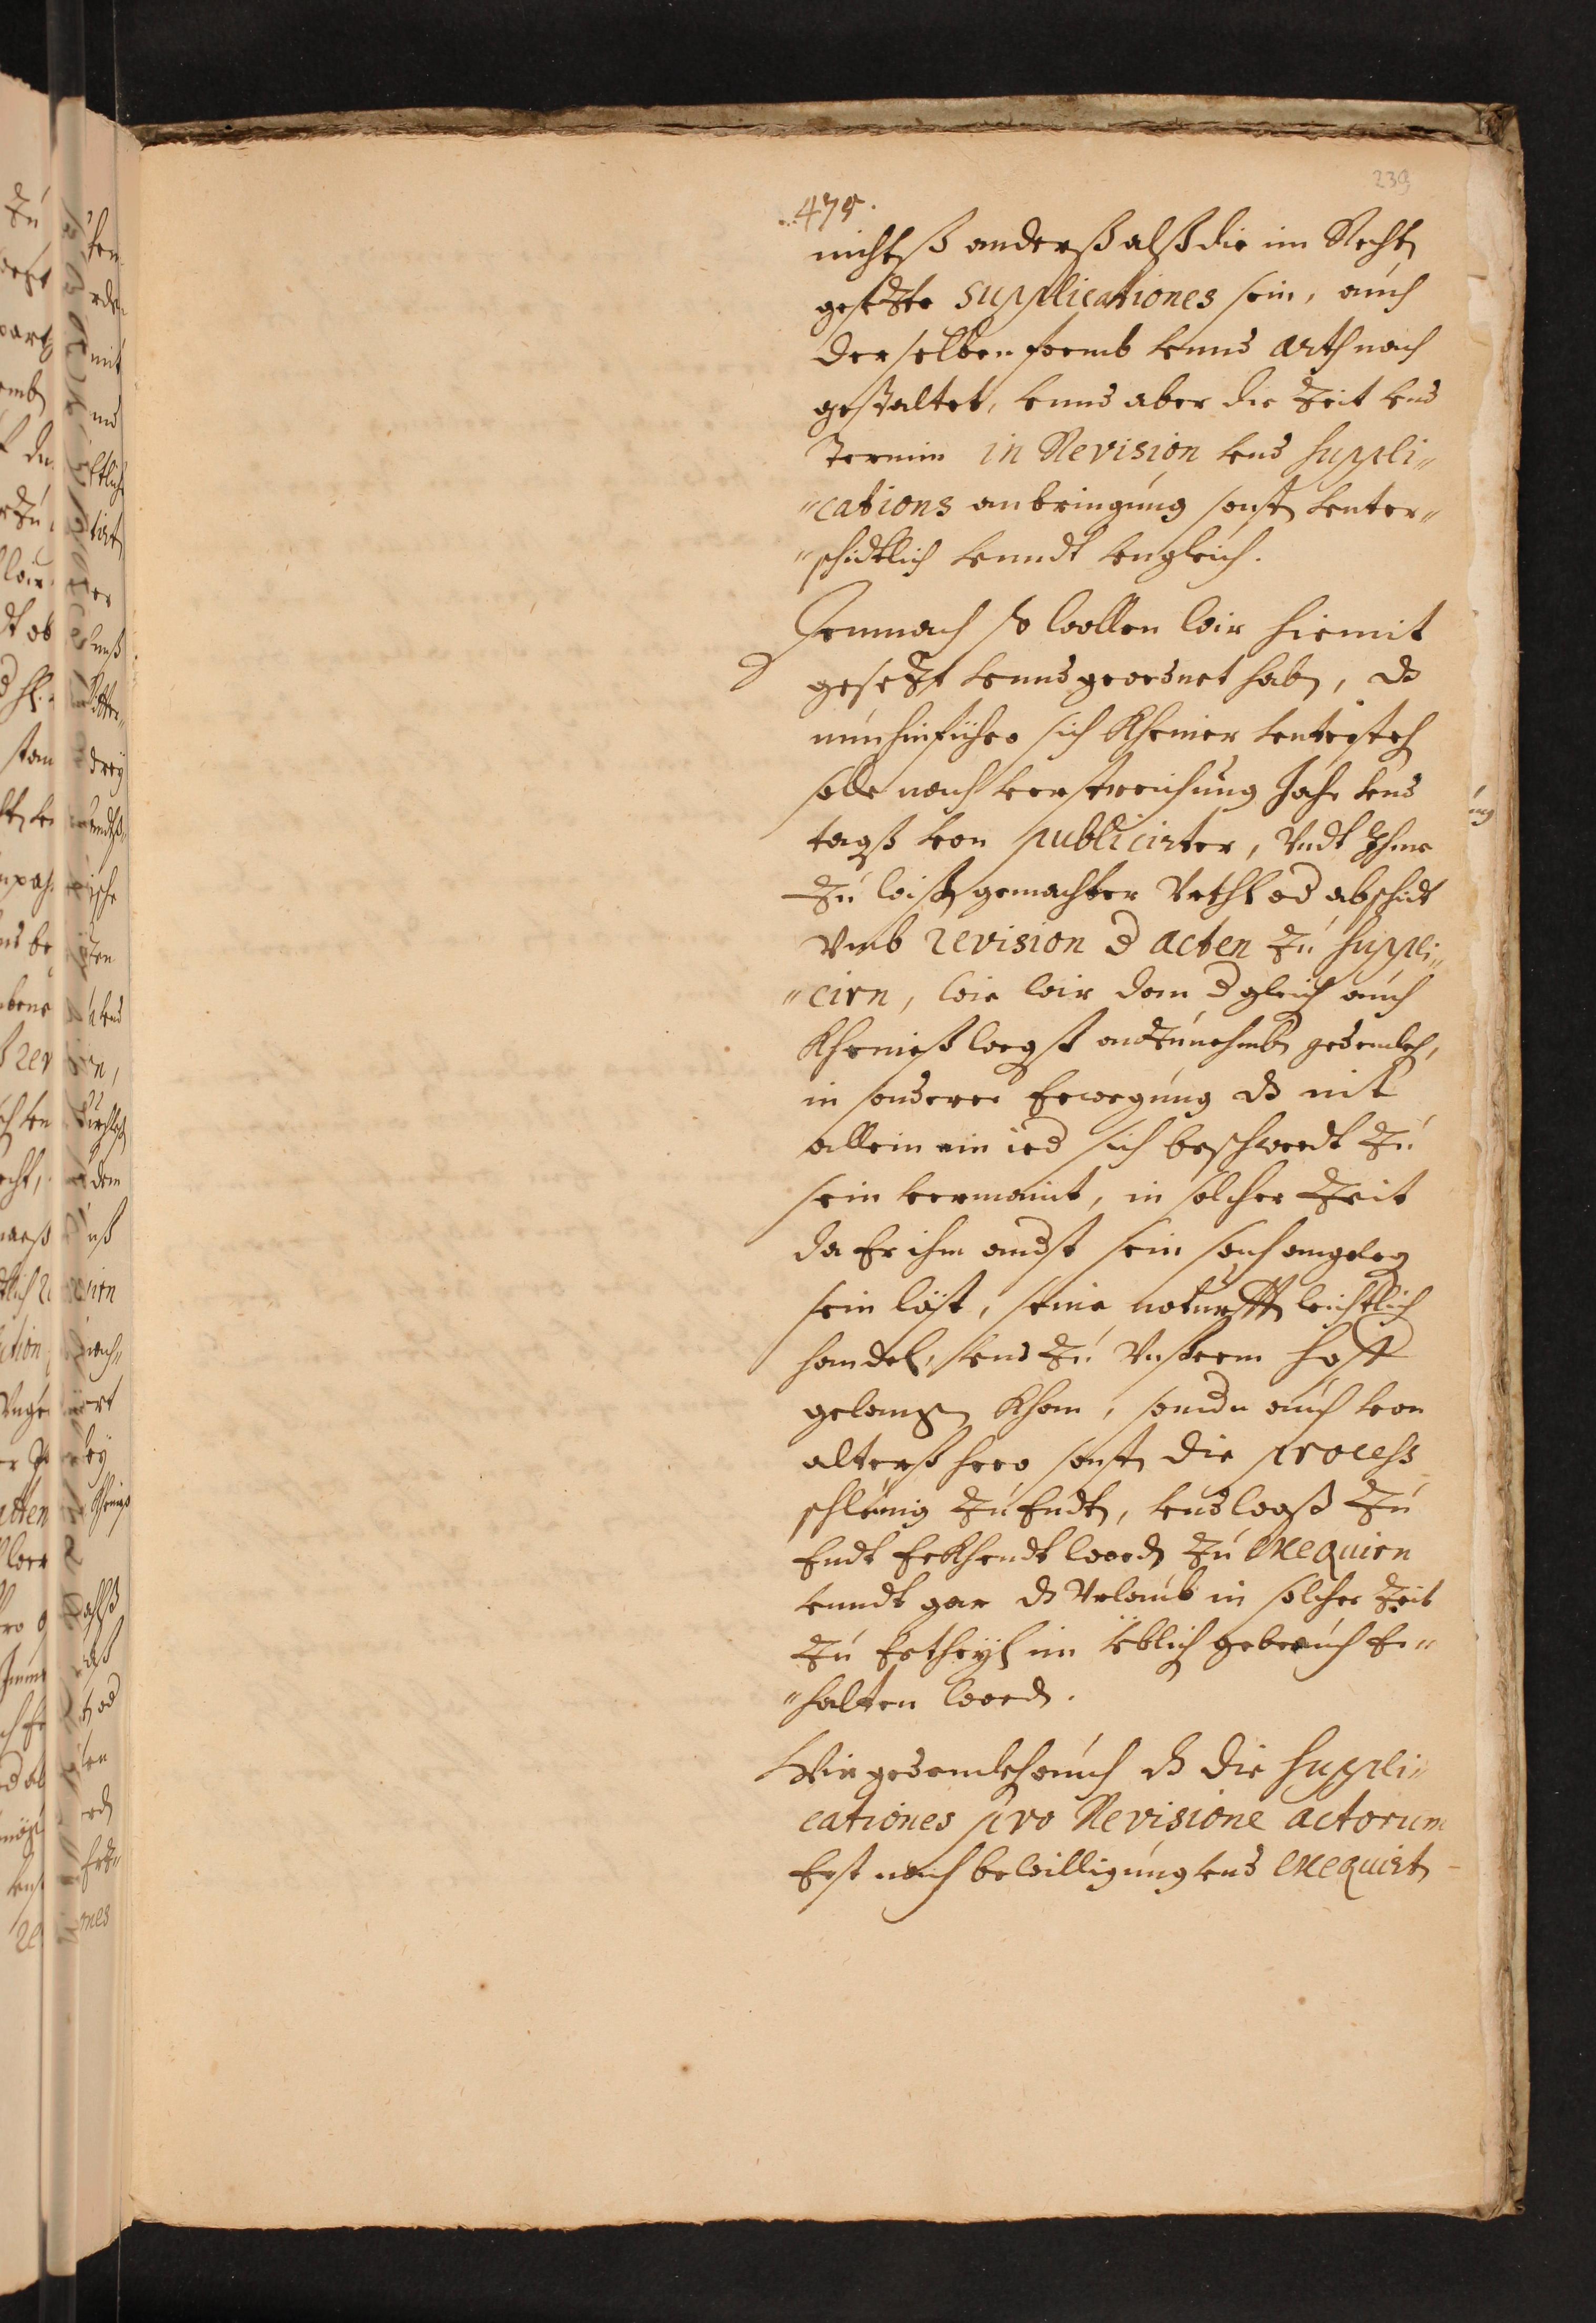 239
475.
nichtß anderß alß die im Rechten
gesetzte supplicationes sein, auch
der selben formb vnnd arth nach
gestaltet, vnnd aber die Zeit vnd
Termin in Revision vnd suppli„
„cations anbringung sonsten vnter„
„schidtlich vnndt vngleich.
Demnach so wollen wir hiemit
gesetzt vnnd geordnet haben, dz
nun hinfüro sich Kheiner vnterstehen
solle nach verstreichung Jahr vnd
tagß von publicirter, Vndt Ihme
Zu wissen gemachter Vrthl od abschidt
Vmb revision d acten Zu suppli„
„cirn, wie wir dan d gleich auch
Kheineß wegß anzunehmben gedenckhen,
in sonderer Erwegung dz nit
allein ein ied sich beschwerdt Zu
sein vermaint, in solcher Zeit
da Er ihm andst sein sach angelegen
sein läst, seine notturfften leichtlich
handeln, vnd Zu Vnserm Hoff
gelangen Khan, sondn auch von
alterß hero sonsten die process
schleünig Zu Enden, vnd waß Zu
Endt Erkhendt worden Zu exequirn
vnndt gar dz Vrlaub in solcher Zeit
Zu Ertheyln im üblich gebrauch Er„
„halten worden.
Wir gedenckhen auch dz die suppli„
cationes pro Revisione actorum
Erst nach bewilligung vnd exequirten